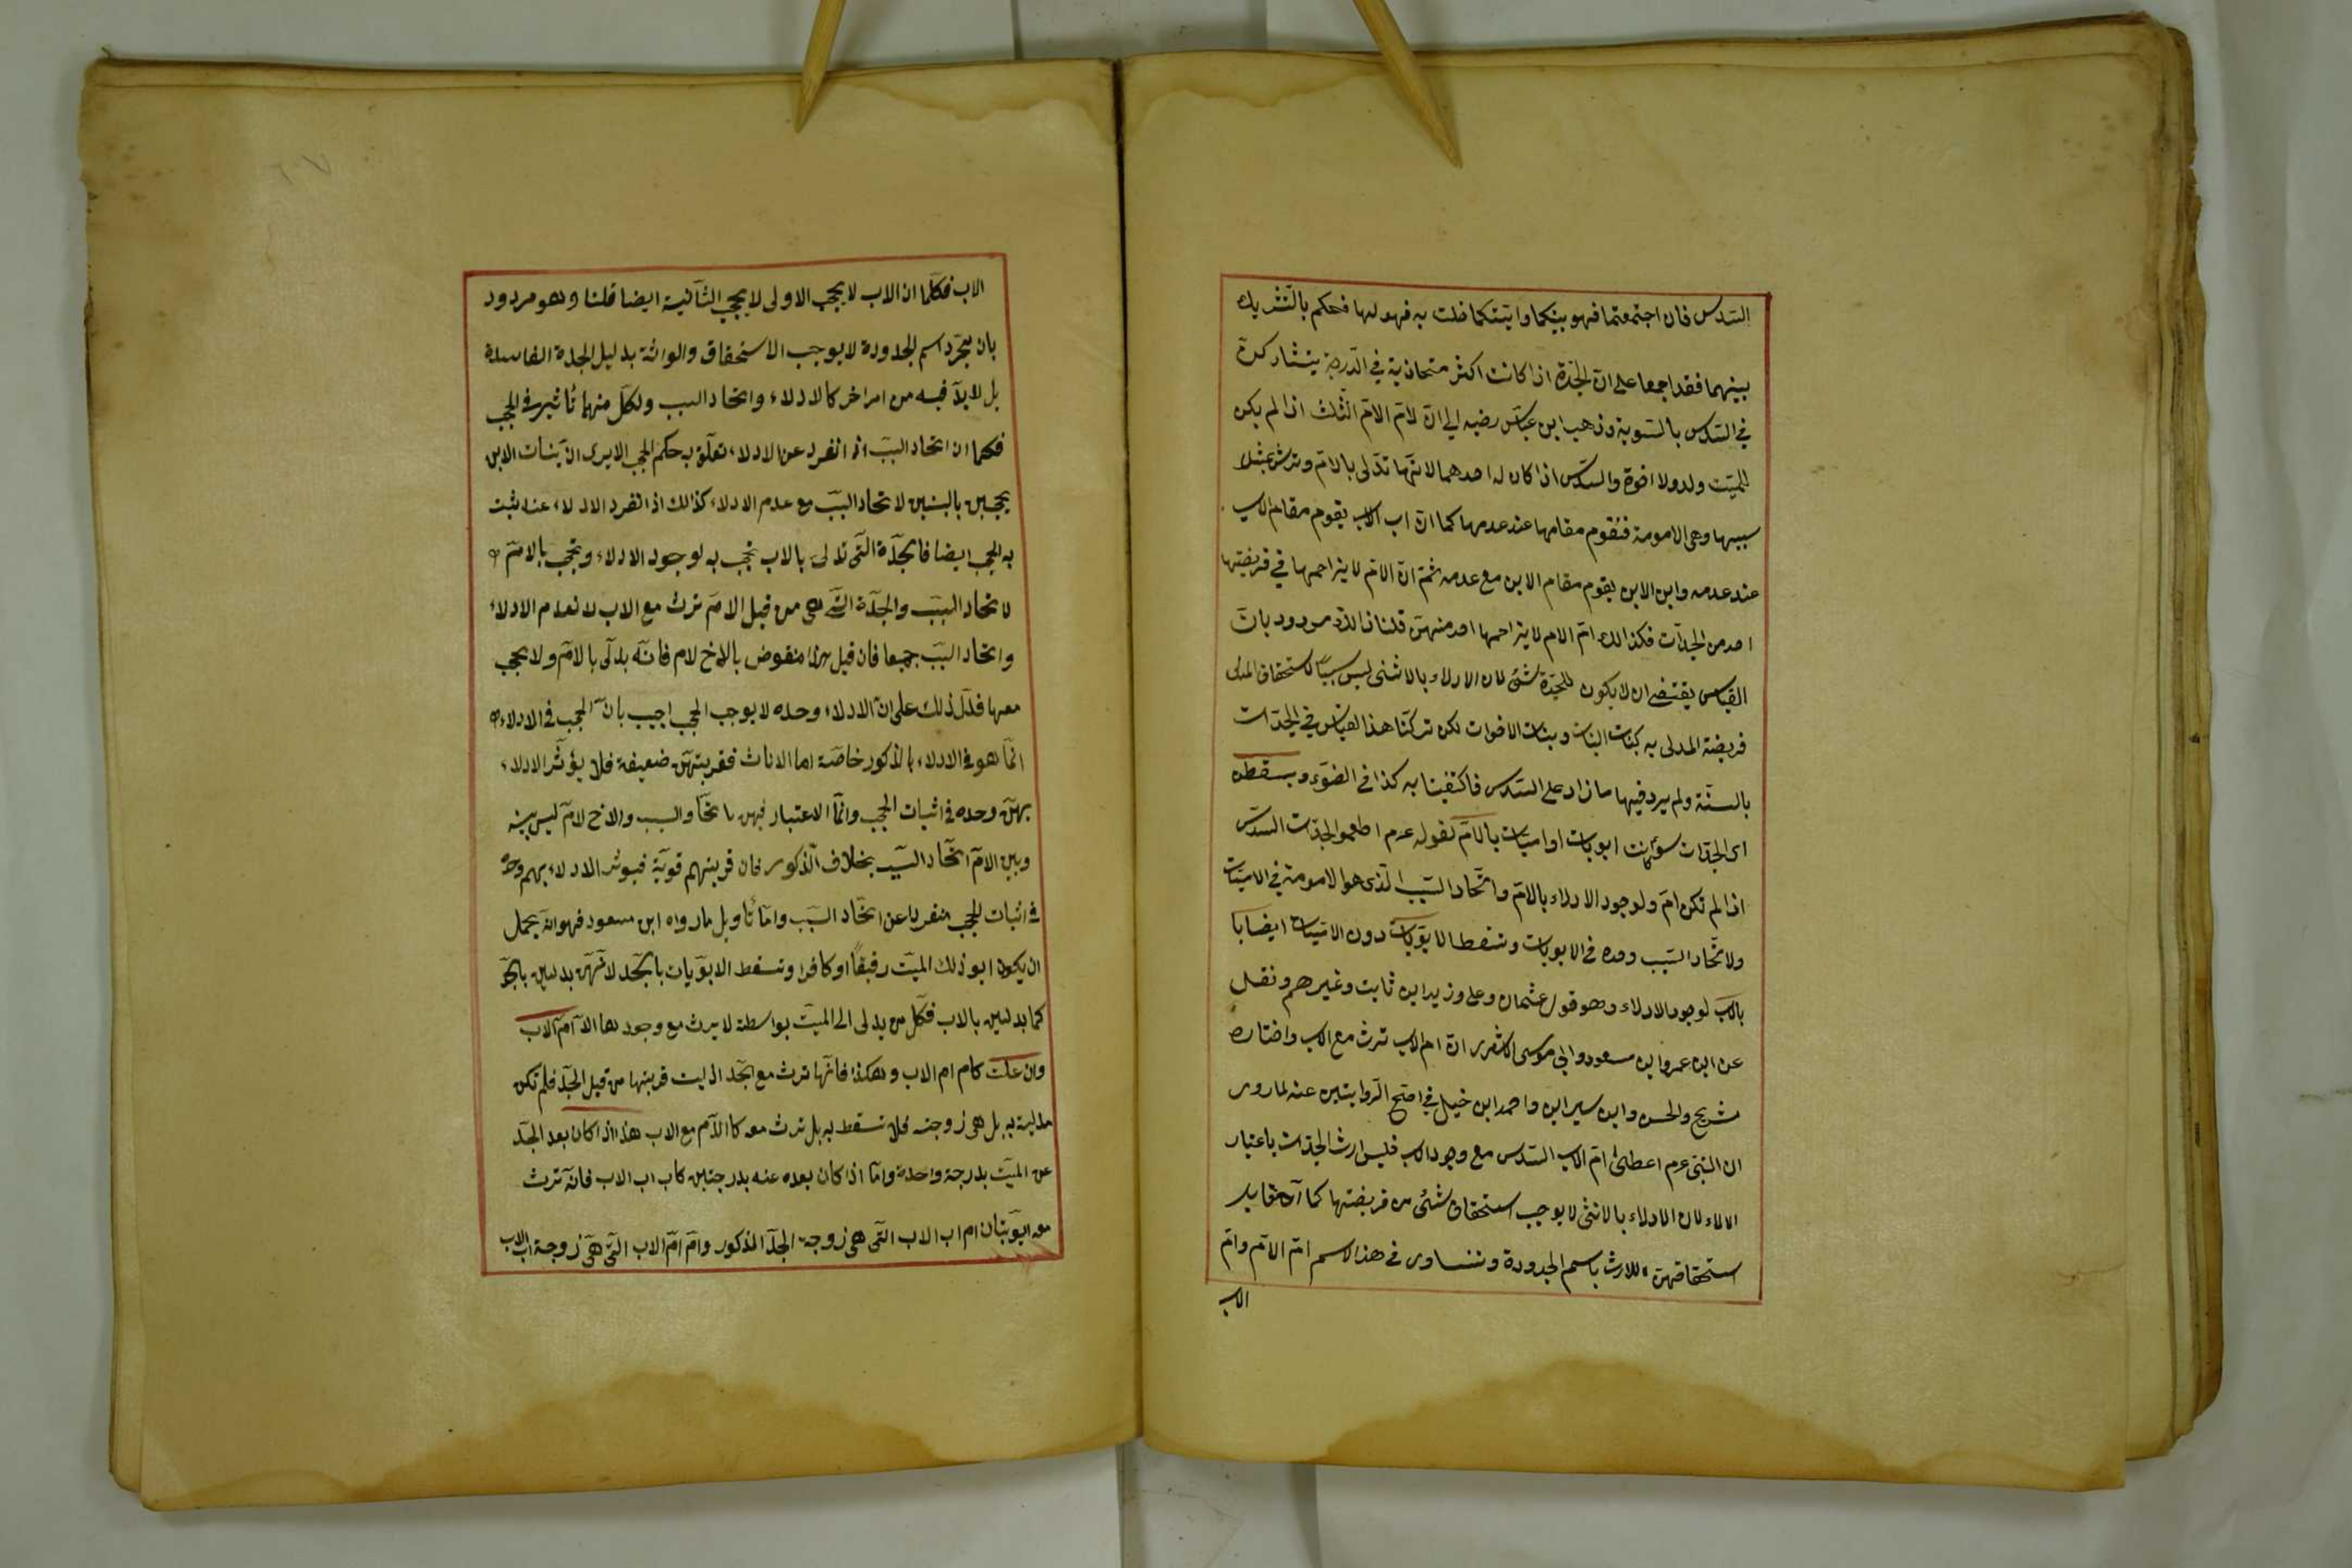 السّدس فان اجتمعتما فهو بينكما وايتكما خلت به فهو لها فحكم بالتشريك
بينهما فقد اجمعا على انّ الجدّة اذا كانت اكثر متحاذية في الدّرجة يتشاركن
في السّدس بالسّوية وذهب ابن عبّاس رضيه الى انّ لامّ الامّ الثلث اذا لم يكن
للميّت ولد ولا اخوة والسّدس اذا كان له احدهما لانّها تدلى بالامّ وترث بمثل
سببها وهى الامومة فتقوم مقامها عند عدمها كما انّ اب الاب يقوم مقام الاب
عند عدمه وابن الابن يقوم مقام الابن مع عدمه ثمّ انّ الامّ لا يزاحمها في فريضتها
احد من الجدّات فكذالك امّ الام لا يزاحمها احد منهنّ قلنا ذالك مردود بانّ
القياس يقتضى ان لا يكون للجدّة شئ لان الادلاء بالانثى ليس سببًا لاستحقاق المدلى
فريضة المدلى به كبنات البنات وبنات الاخوات لكن تركنا هذا القياس في الجدّات
بالسنّة ولم يرد فيها ما زاد على السّدس فاكتفينا به كذا في الضوء ويسقطن
اى الجدّات سواء كنّ ابويات او اميّات بالامّ لقوله عدم اطعموا الجدّات السدّس
اذا لم تكن امّ ولوجود الادلاء بالامّ واتّحاد السّبب الّذى هو الامومة في الاميّات
ولاتّحاد السّبب وحده في الابويات وتسقط الابويّات دون الاميّات ايضا با
بالاب لوجود الادلاء وهو قول عثمان وعلى وزيد ابن ثابت وغيرهم ونقل
عن ابن عمر وابن مسعود وابى موسى الاشعرى انّ ام الاب ترث مع الاب واختاره
شريح والحسن وابن سيرين واحمد ابن حنبل في اصحّ الرّوايتين عنه لما روى
ان النبّى عم اعطى امّ الاب السّدس مع وجود الاب فليس ارث الجدّات باعتبار
الادلاء لان الادلاء بالانثى لا يوجب استحقاق شئ من فريضتها كما
استحقاقهنّ للارث باسم الجدودة وتتساوى في هذا الاسم امّ الامّ وامّ
الاب
الاب فكما ان الاب لا يحجب الاولى لا يحجب الثانية ايضا قلنا وهو مردود
بان مجرّد اسم الجدودة لا يوجب الاستحقاق والوراثة بدليل الجدة الفاسدة
بل لا بدّ فيه من امر اخر كالادلاء واتحاد السبب ولكلّ منهما تأثير في الحجب
فكما ان اتحاد السبب اذا انفرد عن الادلاء تعلّق به حكم الحجب الا يرى انّ بنات الابن
يحجبن بالبنتين لاتحاد السبب مع عدم الادلاء كذالك اذا انفرد الادلاء عنه ثبت
به الحجب ايضا فالجدّة الّتى تدلى بالاب تحجب به لوجود الادلاء وتحجب بالامّ
لاتحاد السبب والجدّة الّتى هى من قبل الامّ ترث مع الاب لانعدام الادلاء
واتحاد السبب جميعا فان قيل هذا منقوض بالاخ لام فانّه يدلّى بالامّ ولا يحجب
معها فدلّ ذلك على انّ الادلاء وحده لا يوجب الحجب اجيب بانّ الحجب في الادلاء
انّما هو في الادلاء بالذكور خاصّة اما الاناث فقربتهنّ ضعيفة فلا يؤثّر الادلاء
بهنّ وحده في اثبات الحجب وانّما الاعتبار فيهن باتحاد السبب والاخ لامّ ليس بينه
وبين الامّ اتّحاد السّبب بخلاف الذكور فان قربتهم قويّة فيوثر الادلاء بهم وحده
في اثبات الحجب منفردا عن اتحّاد السّبب وامّا تأويل ما رواه ابن مسعود فهو انّه يحمل
ان يكون ابو ذلك الميّت رقيقًا او كافرا وتسقط الابوّيات بالجدّ لانهّن يدلين بالجدّ
كما يدلين بالاب فكلّ من يدلى الى الميّت بواسطة لا يرث مع وجودها الّا امّ الاب
وان علت كام ام الاب وهكذا فانّها ترث مع الجد اذ ليست قربتها من قبل الجدّ فلم تكن
مدلية به بل هى زوجته فلا تسقط به بل ترث معه كالامّ مع الاب هذا اذا كان بعد الجدّ
عن الميّت بدرجة واحدة وامّا اذا كان بعده عنه بدرجتين كاب اب الاب فانّه ترث
معه ابويّتان ام اب الاب الّتى هى زوجة الجدّ المذكور وامّ امّ الاب الّتى هى زوجة اب الاب